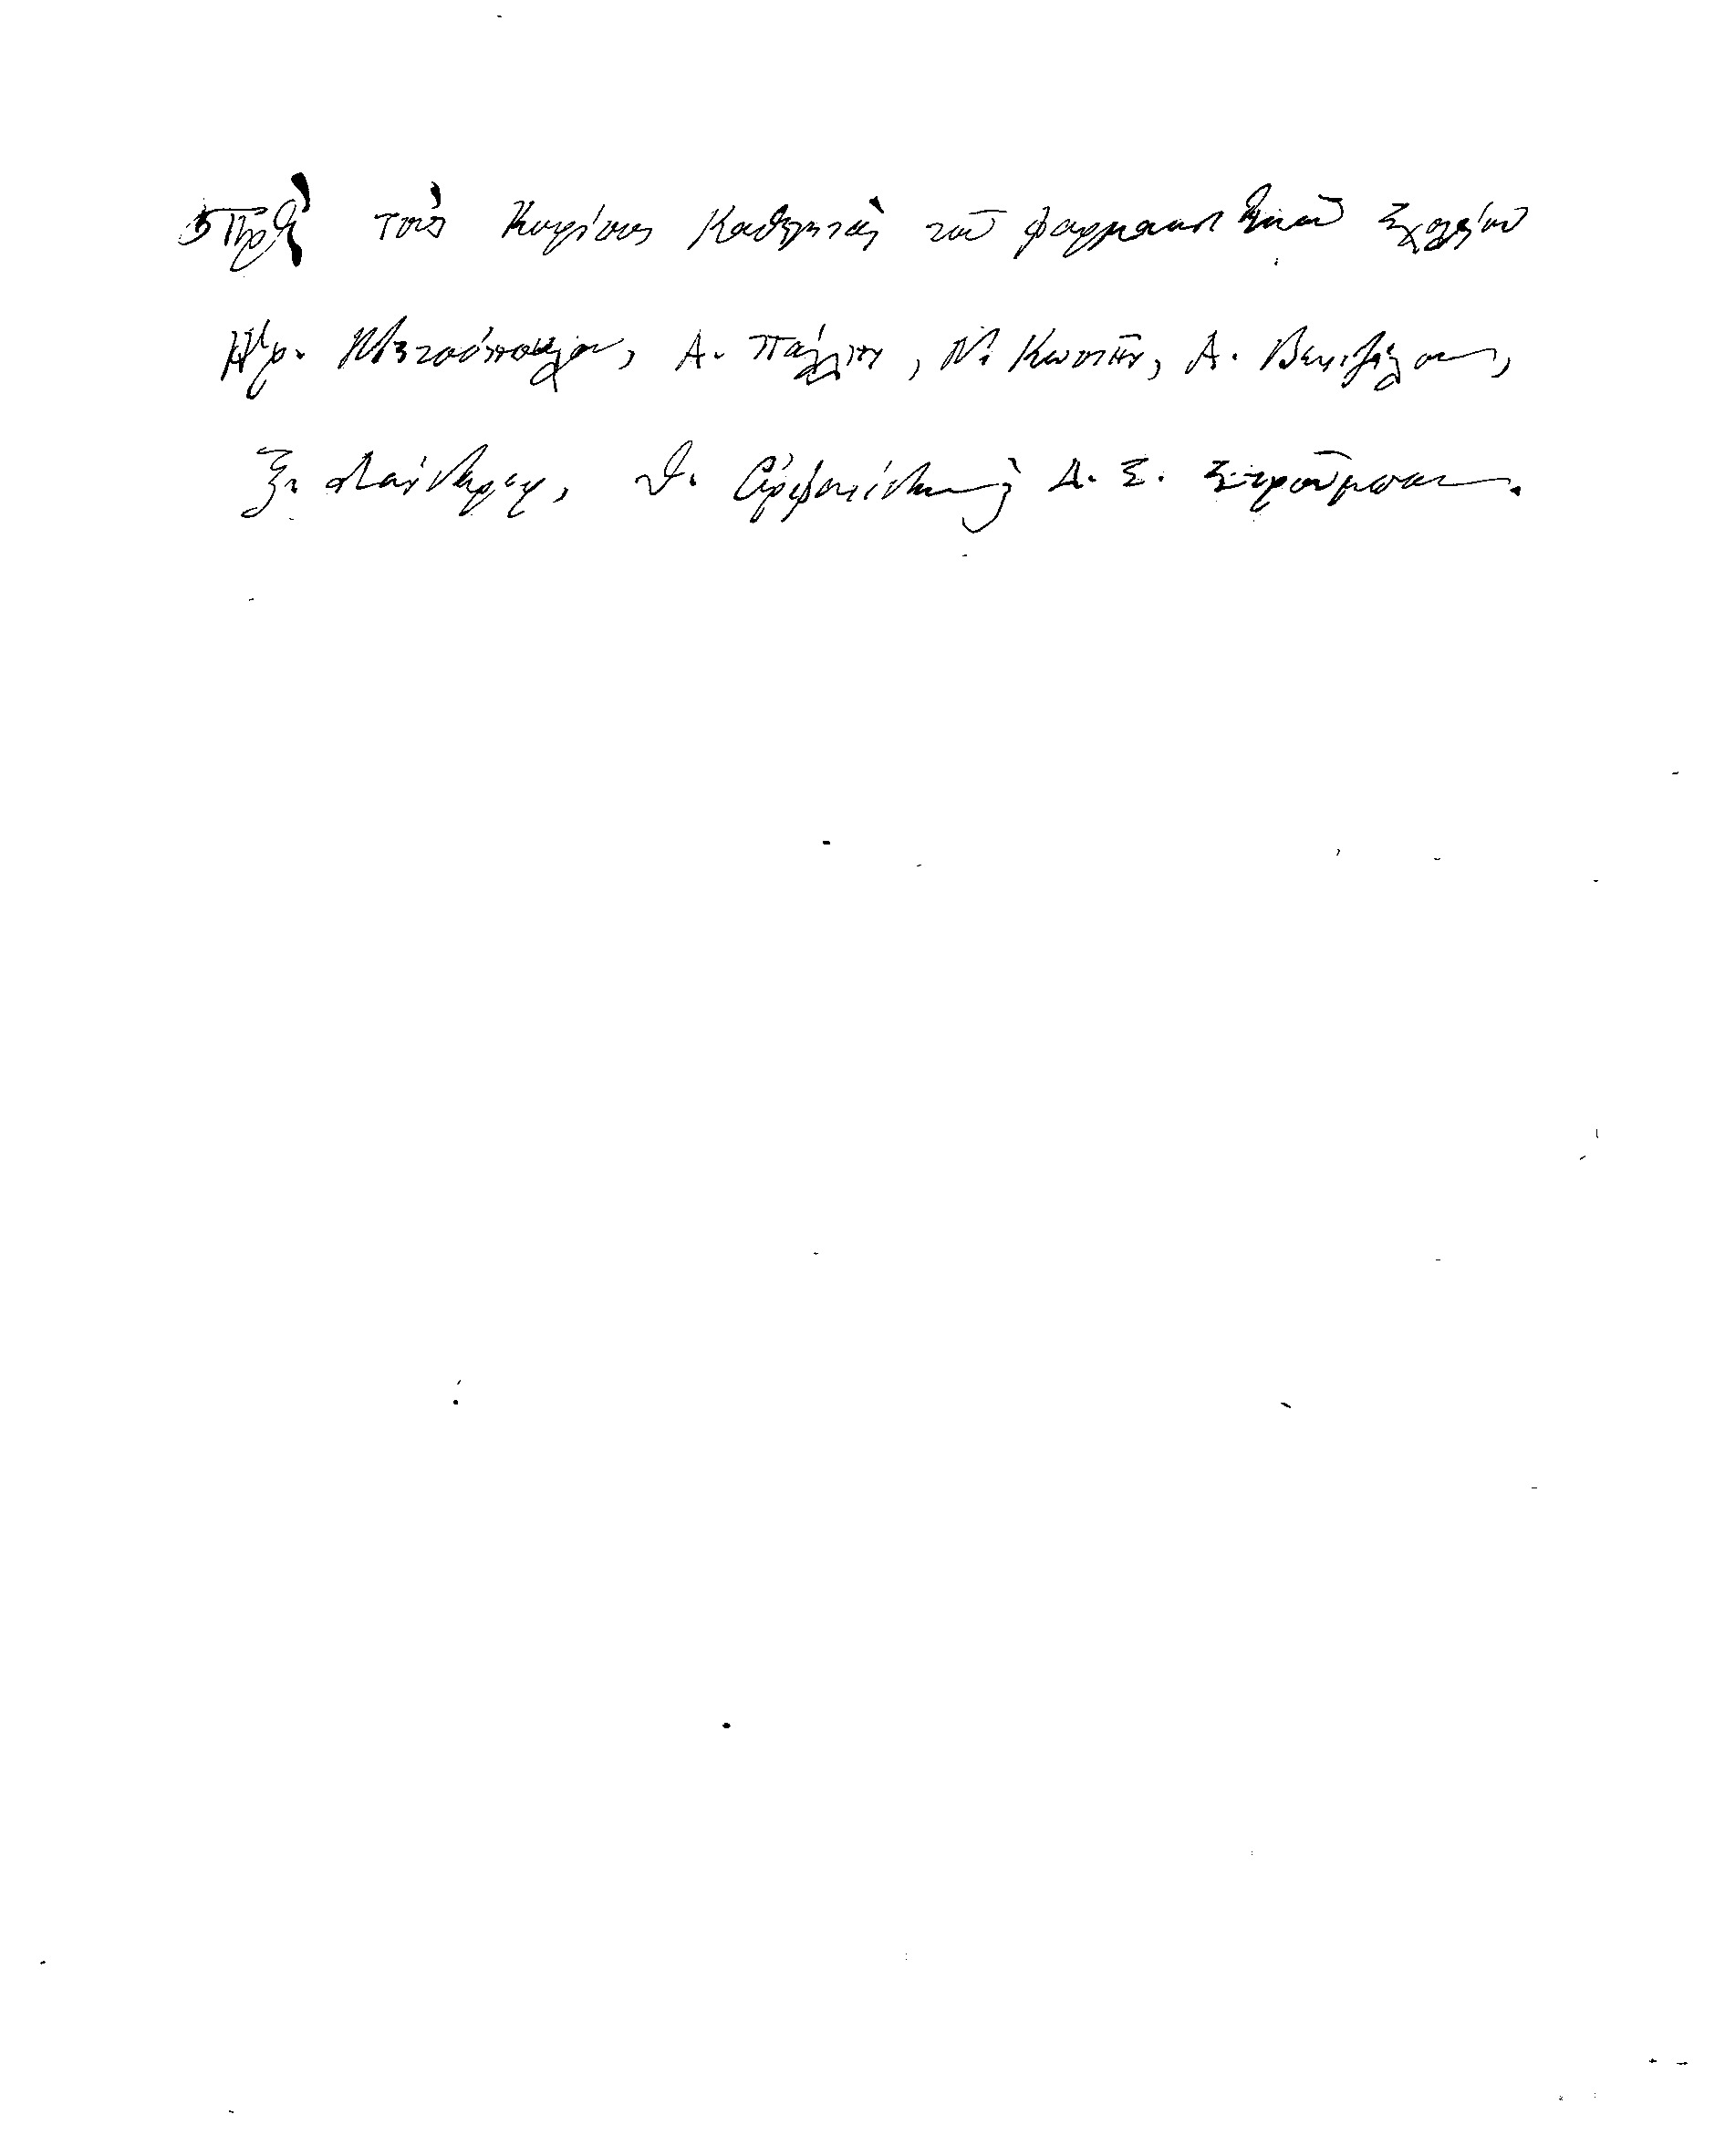 Πρὸς τοὺς Κυρίους Καθηγητὰς τοῦ φαρμακευτικοῦ Σχολείου
Ἡρ. Μητσόπουλον, Α. Πάλλην, Ν. Κωστῆν, Α. Βενιζέλον,
Ξ. Λάνδερερ, Θ. Ὀρφανίδην Δ. Σ. Στροῦμπον.